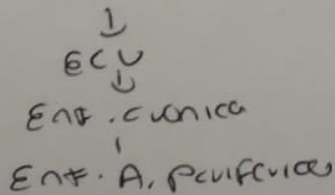 ↓
ECV
↓
Enf. cronica
Enf. A. Periferica